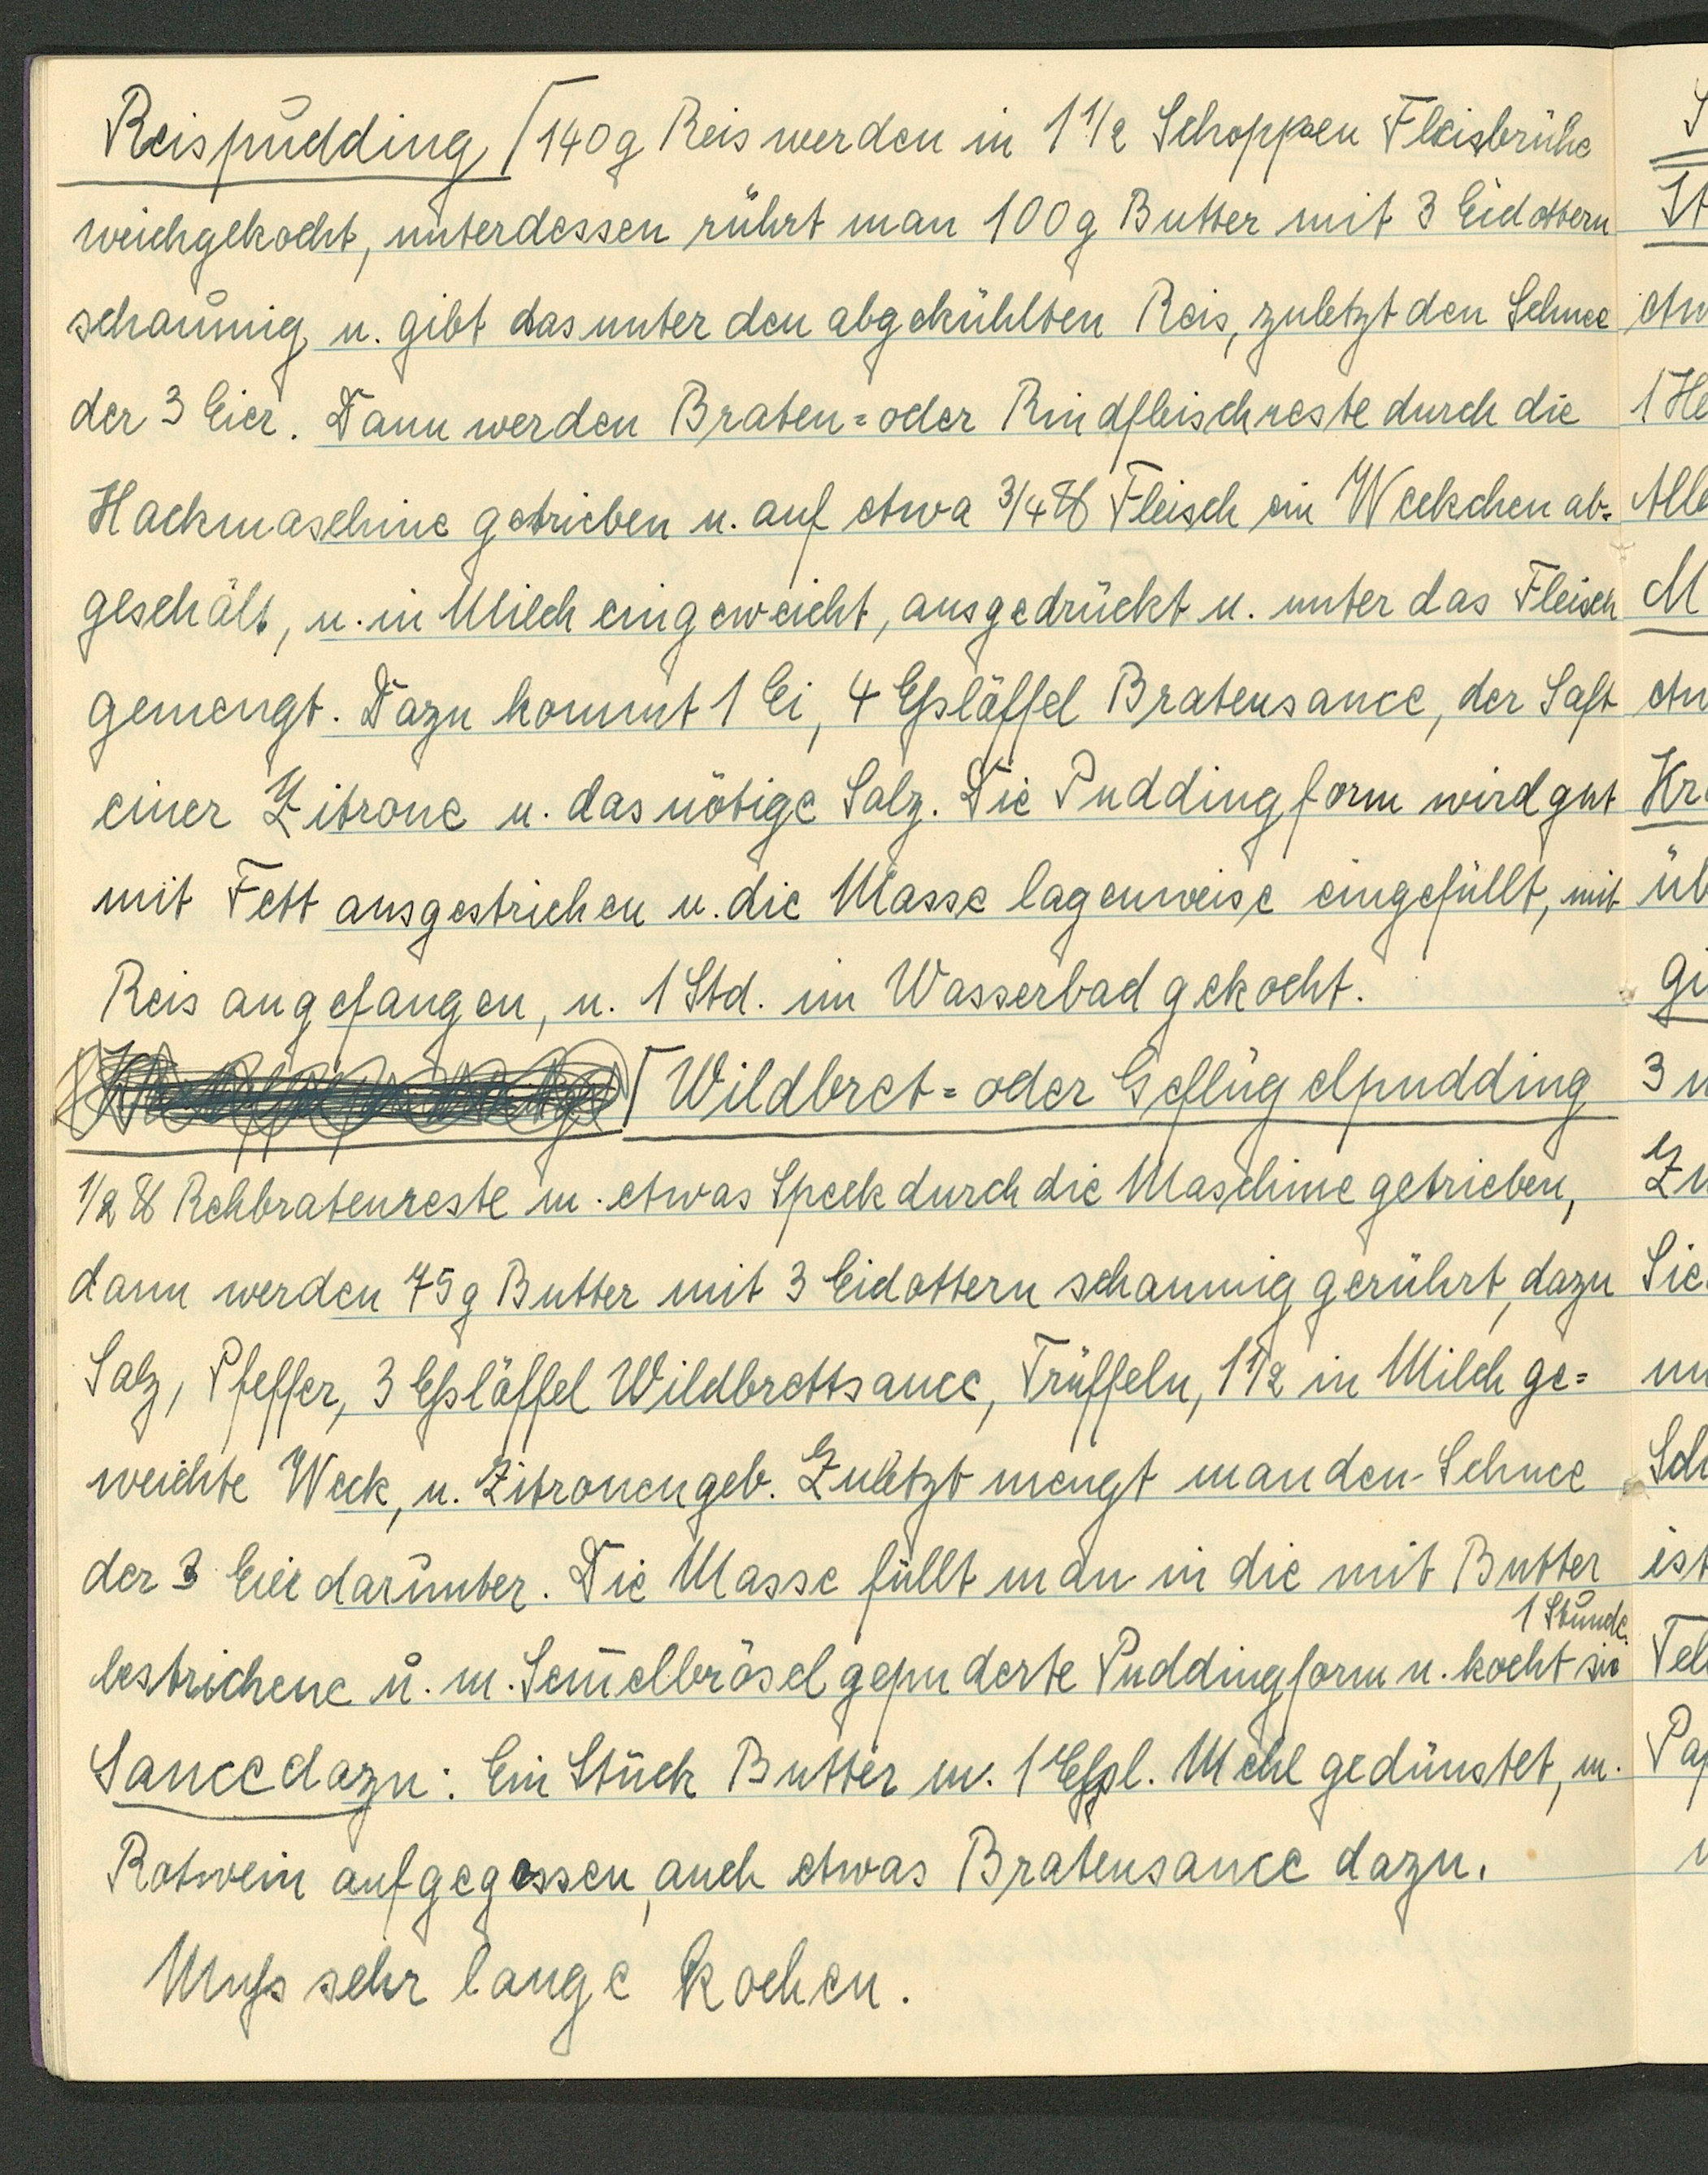 Reispudding 140g Reis werden in 1 1/2 Schoppen Fleisbrühe
weichgekocht, unterdessen rührt man 100g Butter mit 3 Eidottern
schaumig u. gibt das unter den abgekühlten Reis, zuletzt den Schnee
der 3 Eier. Dann werden Braten= oder Rindfleischreste durch die
Hackmaschine getrieben u. auf etwa 3/4 ℔ Fleisch ein Weckchen ab=
geschält, u. in Milch eingeweicht, ausgedrückt u. unter das Fleisch
gemengt. Dazu kommt 1 Ei, 4 Eßlöffel Bratensauce, der Saft
einer Zitrone u. das nötige Salz. Die Puddingform wird gut
mit Fett ausgestrichen u. die Masse lagenweise eingefüllt, mit
Reis angefangen, u. 1 Std. im Wasserbad gekocht.
Wildbret= oder Geflügelpudding
1/2 ℔ Rehbratenreste m. etwas Speck durch die Maschine getrieben,
dann werden 75g Butter mit 3 Eidottern schaumig gerührt, dazu
Salz, Pfeffer, 3 Eßlöffel Wildbrettsauce, Trüffeln, 1 1/2 in Milch ge=
weichte Weck, u. Zitronengeb. Zuletzt mengt man den Schnee
der 3 Eier darunter. Die Masse füllt man in die mit Butter
1 Stunde.
bestrichene u. m. Sem̅elbrösel gepuderte Puddingform u. kocht sie
Sauce dazu: Ein Stück Butter m. 1 Eßl. Mehl gedünstet, m.
Rotwein aufgegossen, auch etwas Bratensauce dazu.
Muß sehr lange kochen.